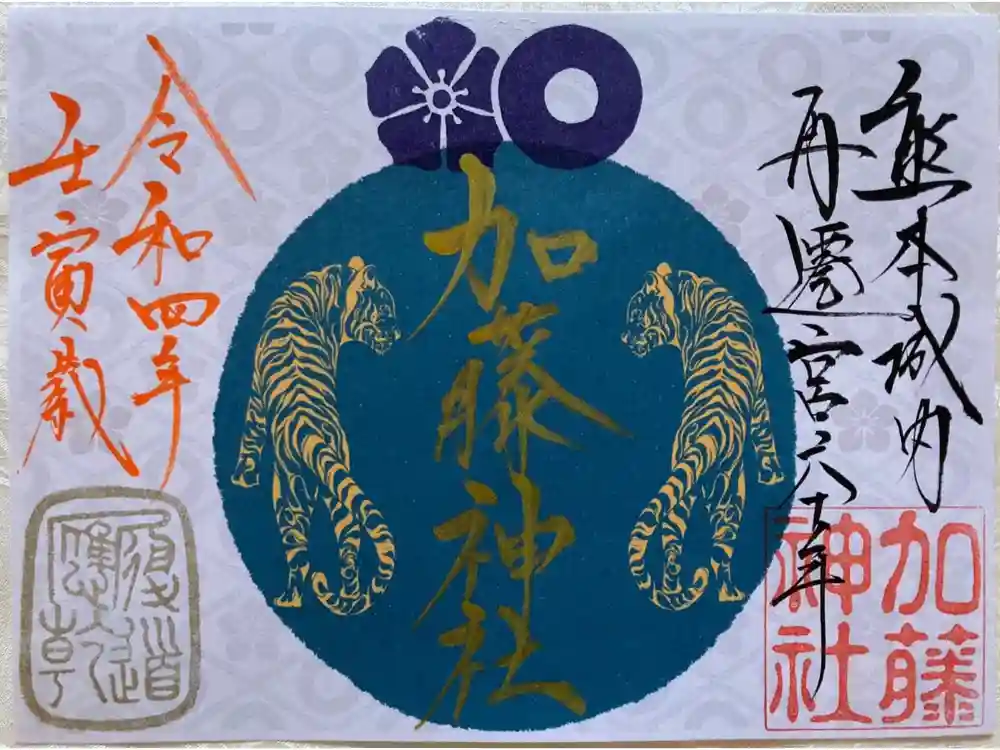 熊本城内
再遷宮六十年
加藤神社
加藤神社
令和四年
壬寅歳